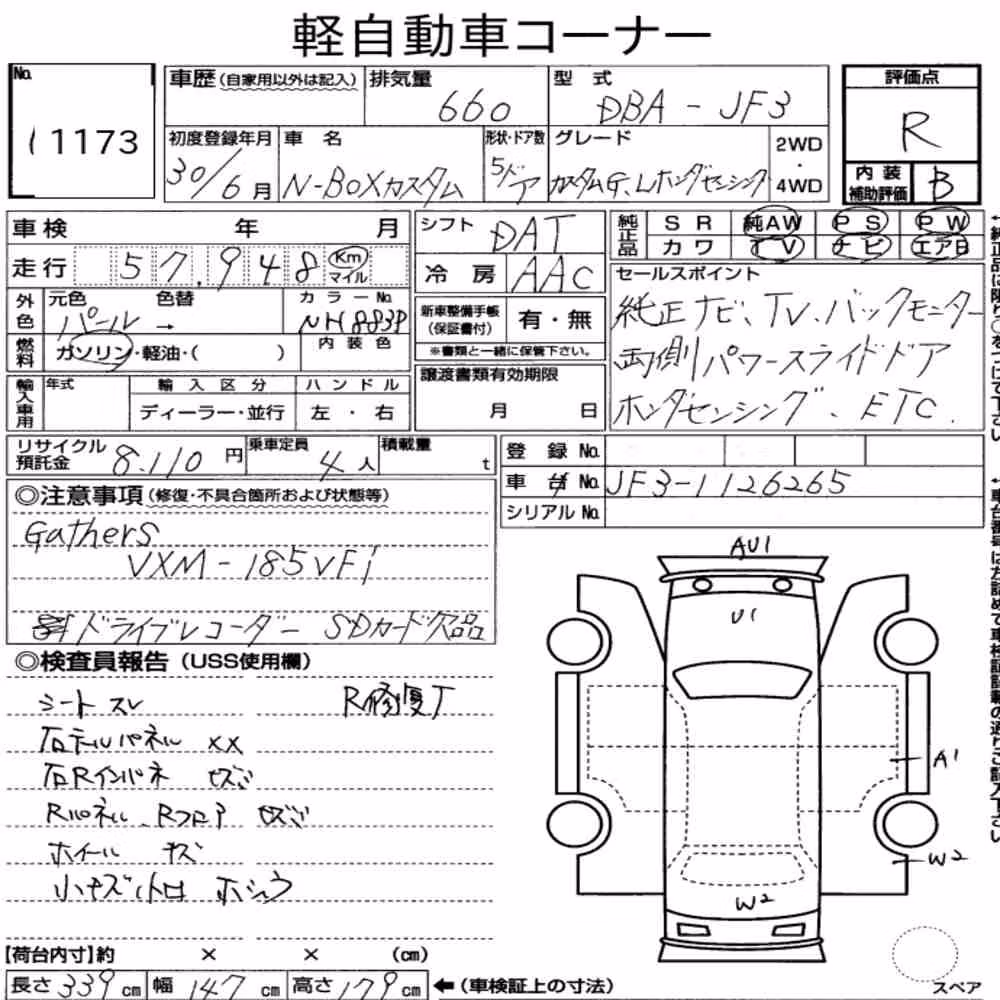 軽自動車コーナー
No. 11173
車歴(自家用以外は記入) 排気量 660 型式 DBA-JF3 評価点 R
初度登録年月 30/6月 車名 N-BOXカスタム 形状・ドア数 5ドア グレード カスタムG、Lホンダセンシング 2WD・4WD 内装補助評価 B
車検 年 月 シフト DAT 純正品 SR 純AW PS PW
カワ TV ナビ エアB
走行 57,948 Km マイル 冷房 AAC
外色 元色 パール → 色替 カラーNo. NH883P 内装色
燃料 ガソリン・軽油・( )
新車整備手帳(保証書付) 有・無
※書類と一緒に保管下さい。
輸入車用 年式 輸入区分 ディーラー・並行 ハンドル 左・右
譲渡書類有効期限 月 日
セールスポイント
純正ナビ、TV、バックモニター
両側パワースライドドア
ホンダセンシング、ETC.
リサイクル預託金 8.110円 乗車定員 4人 積載量 t
登録No.
車台No. JF3-1126265
シリアルNo.
◎注意事項(修復・不具合箇所および状態等)
Gathers
VXM-185VFi
ドライブレコーダー SDカード欠品
◎検査員報告(USS使用欄)
シートスレ R修復了
右テールパネル XX
右Rインパネ セズミ
Rパネル、Rフロア セズミ
ホイール キズ
小キズ
AU1
U1
A1
W2
W2
スペア
【荷台内寸】約 × × (cm)
長さ339cm 幅147cm 高さ179cm ←(車検証上の寸法)
↑純正品は限り○をつけて下さい
↑車台番号は左詰めで車検証記載の通りご記入下さい